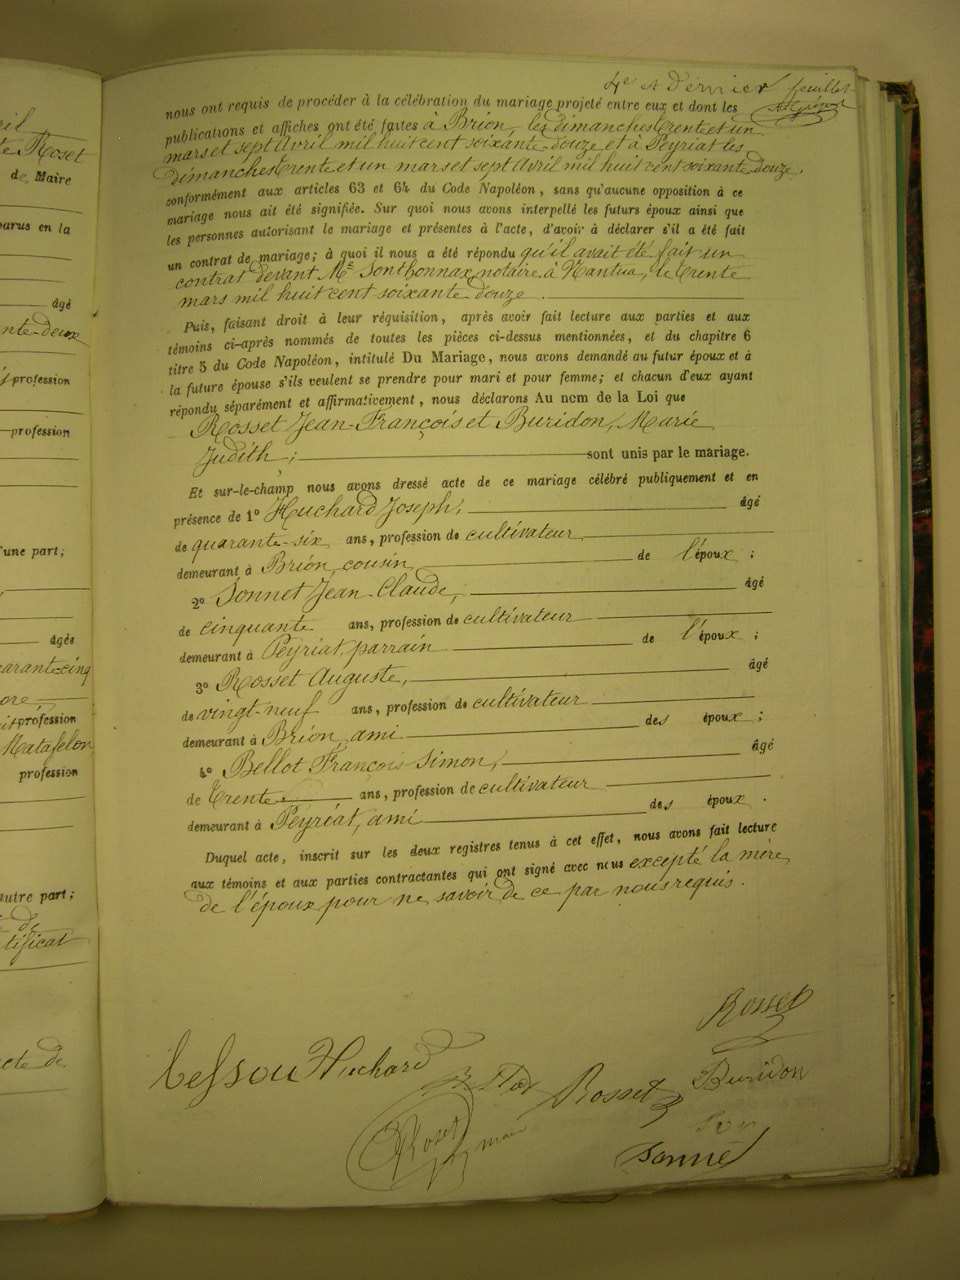 ril
te Roset
de Maire
parus en la
âgé
ante-deux
profession
profession
d'une part;
âgés
quarante-cinq
profession
Matafelon
profession
autre part;
de
tificat
acte de
4e et Dernier feuillet
nous ont requis de procéder à la célébration du mariage projeté entre eux et dont les
publications et affiches ont été faites à Brion, les dimanches trente et un
mars et sept Avril mil huit cent soixante-douze et à Peyriat les
dimanches trente et un mars et sept Avril mil huit cent soixante-douze,
conformément aux articles 63 et 64 du Code Napoléon, sans qu'aucune opposition à ce
mariage nous ait été signifiée. Sur quoi nous avons interpellé les futurs époux ainsi que
les personnes autorisant le mariage et présentes à l'acte, d'avoir à déclarer s'il a été fait
un contrat de mariage; à quoi il nous a été répondu qu'il avait été fait un
contrat devant Me Sonthonnax, notaire à Nantua, le trente
mars mil huit cent soixante-douze.
Puis, faisant droit à leur réquisition, après avoir fait lecture aux parties et aux
témoins ci-après nommés de toutes les pièces ci-dessus mentionnées, et du chapitre 6
titre 5 du Code Napoléon, intitulé Du Mariage, nous avons demandé au futur époux et à
la future épouse s'ils veulent se prendre pour mari et pour femme; et chacun d'eux ayant
répondu séparément et affirmativement, nous déclarons Au nom de la Loi que
Rosset Jean-François et Buridon, Marie
Judith; sont unis par le mariage.
Et sur-le-champ nous avons dressé acte de ce mariage célébré publiquement et en
présence de 1° Huchard Joseph, âgé
de quarante-six ans, profession de cultivateur
demeurant à Brion, cousin de l'époux;
2° Sonnet Jean-Claude, âgé
de cinquante ans, profession de cultivateur
demeurant à Peyriat, parrain de l'époux;
3° Rosset Auguste, âgé
de vingt-neuf ans, profession de cultivateur
demeurant à Brion, ami des époux;
4° Bellot François Simon, âgé
de trente ans, profession de cultivateur
demeurant à Peyriat, ami des époux.
Duquel acte, inscrit sur les deux registres tenus à cet effet, nous avons fait lecture
aux témoins et aux parties contractantes qui ont signé avec nous excepté la mère
de l'époux pour ne savoir de ce par nous requis.
Rosset
Huchard
Buridon
Rosset
Roset
maire
Sonné